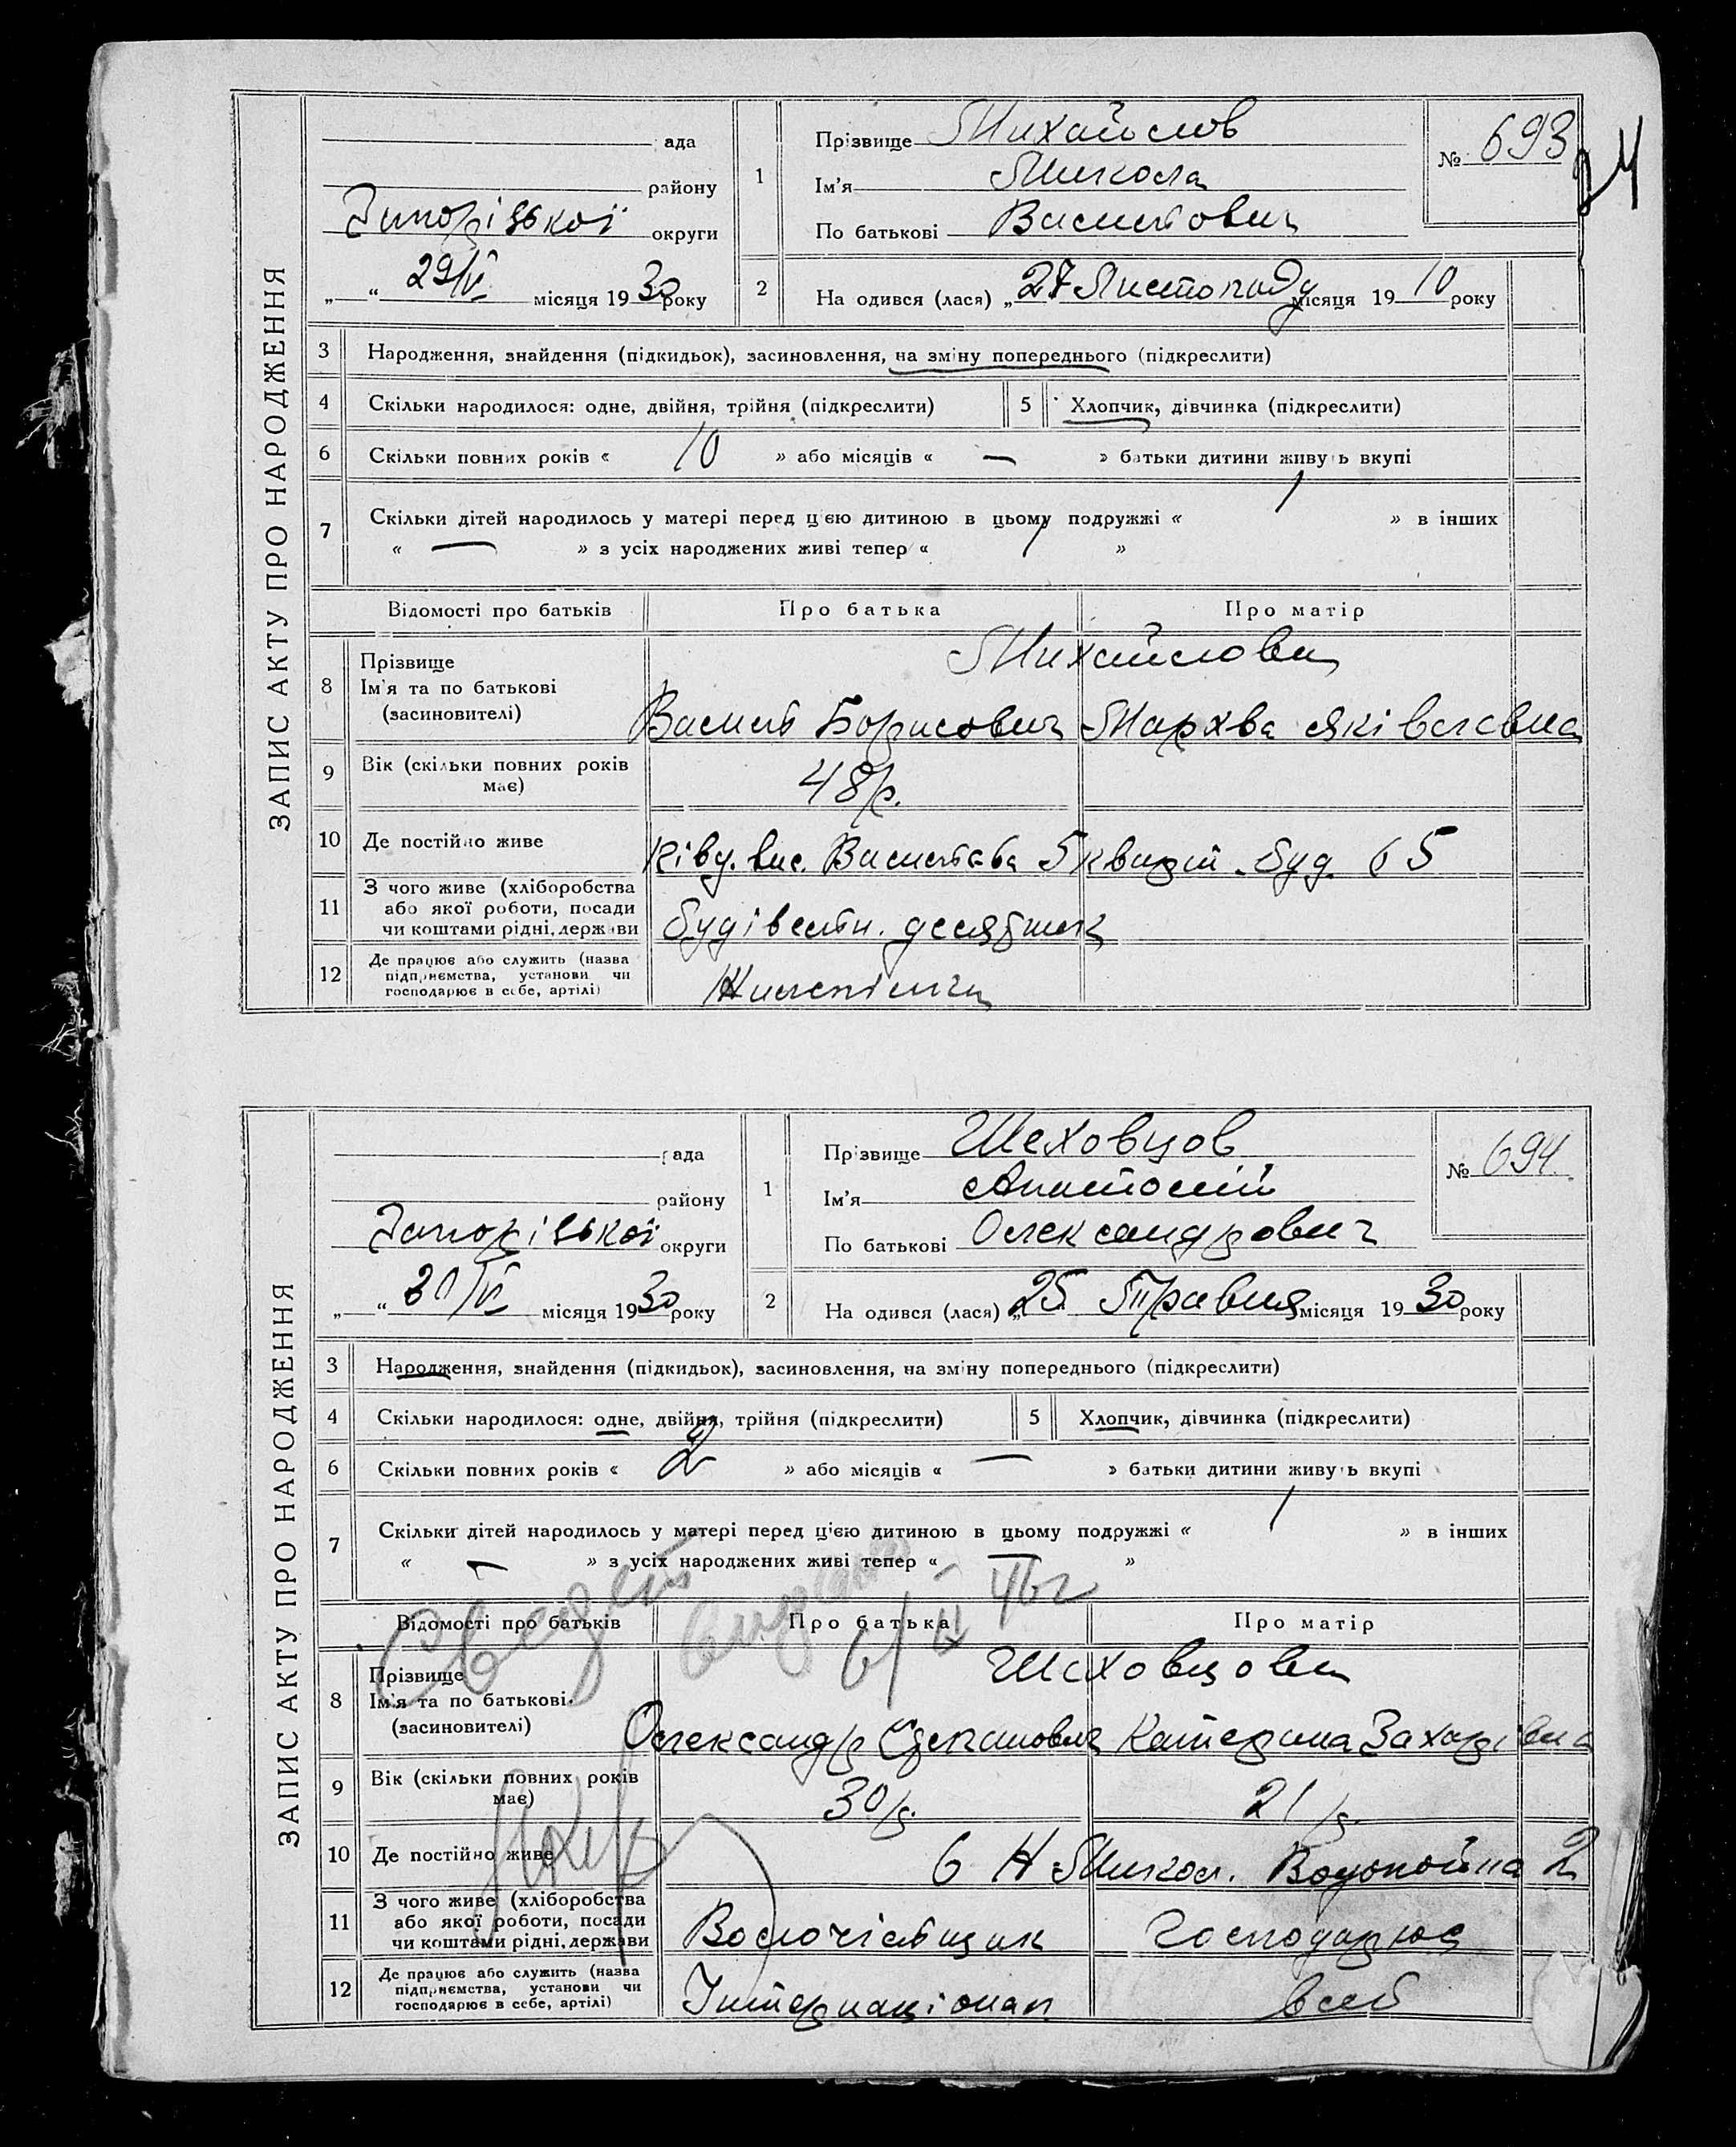 ЗАПИС АКТУ ПРО НАРОДЖЕННЯ
рада
району
Запорізької округи
„ “ 29/V місяця 1930 року
1
Прізвище Михайлов
Ім'я Микола
По батькові Васильович
№ 693
24
2
На одився (лася) „27 Листопаду місяця 1910 року
3 Народження, знайдення (підкидьок), засиновлення, на зміну попереднього (підкреслити)
4 Скільки народилося: одне, двійня, трійня (підкреслити)
5 Хлопчик, дівчинка (підкреслити)
6 Скільки повних років « 10 » або місяців « — » батьки дитини живуть вкупі
7 Скільки дітей народилось у матері перед цією дитиною в цьому подружжі « 1 » в інших
« — » з усіх народжених живі тепер « 1 »
Відомості про батьків Про батька Про матір
8 Прізвище
Ім'я та по батькові
(засиновителі)
Михайлови
Василь Борисович Мархва Яківлевна
9 Вік (скільки повних років має)
48 р.
10 Де постійно живе
буд. 65
11 З чого живе (хліборобства
або якої роботи, посади
чи коштами рідні, держави
будівельн. десятник
12 Де працює або служить (назва
підприємства, установи чи
господарює в себе, артілі)
ЗАПИС АКТУ ПРО НАРОДЖЕННЯ
рада
району
Запорізької округи
„ “ 30/V місяця 1930 року
1
Прізвище Шеховцов
Ім'я Анатолій
По батькові Олександрович
№ 694.
2
На одився (лася) „25 Травня місяця 1930 року
3 Народження, знайдення (підкидьок), засиновлення, на зміну попереднього (підкреслити)
4 Скільки народилося: одне, двійня, трійня (підкреслити)
5 Хлопчик, дівчинка (підкреслити)
6 Скільки повних років « 2 » або місяців « — » батьки дитини живуть вкупі
7 Скільки дітей народилось у матері перед цією дитиною в цьому подружжі « 1 » в інших
« — » з усіх народжених живі тепер « — »
46 г
Відомості про батьків Про батька Про матір
8 Прізвище
Ім'я та по батькові
(засиновителі)
Шеховцови
Олександр Степанович Катерина Захарівна
9 Вік (скільки повних років має)
30 р. 21 р.
10 Де постійно живе
6 Н Микол. Водопойна 2
11 З чого живе (хліборобства
або якої роботи, посади
чи коштами рідні, держави
Господарює
12 Де працює або служить (назва
підприємства, установи чи
господарює в себе, артілі)
Інтернаціонал
в себ